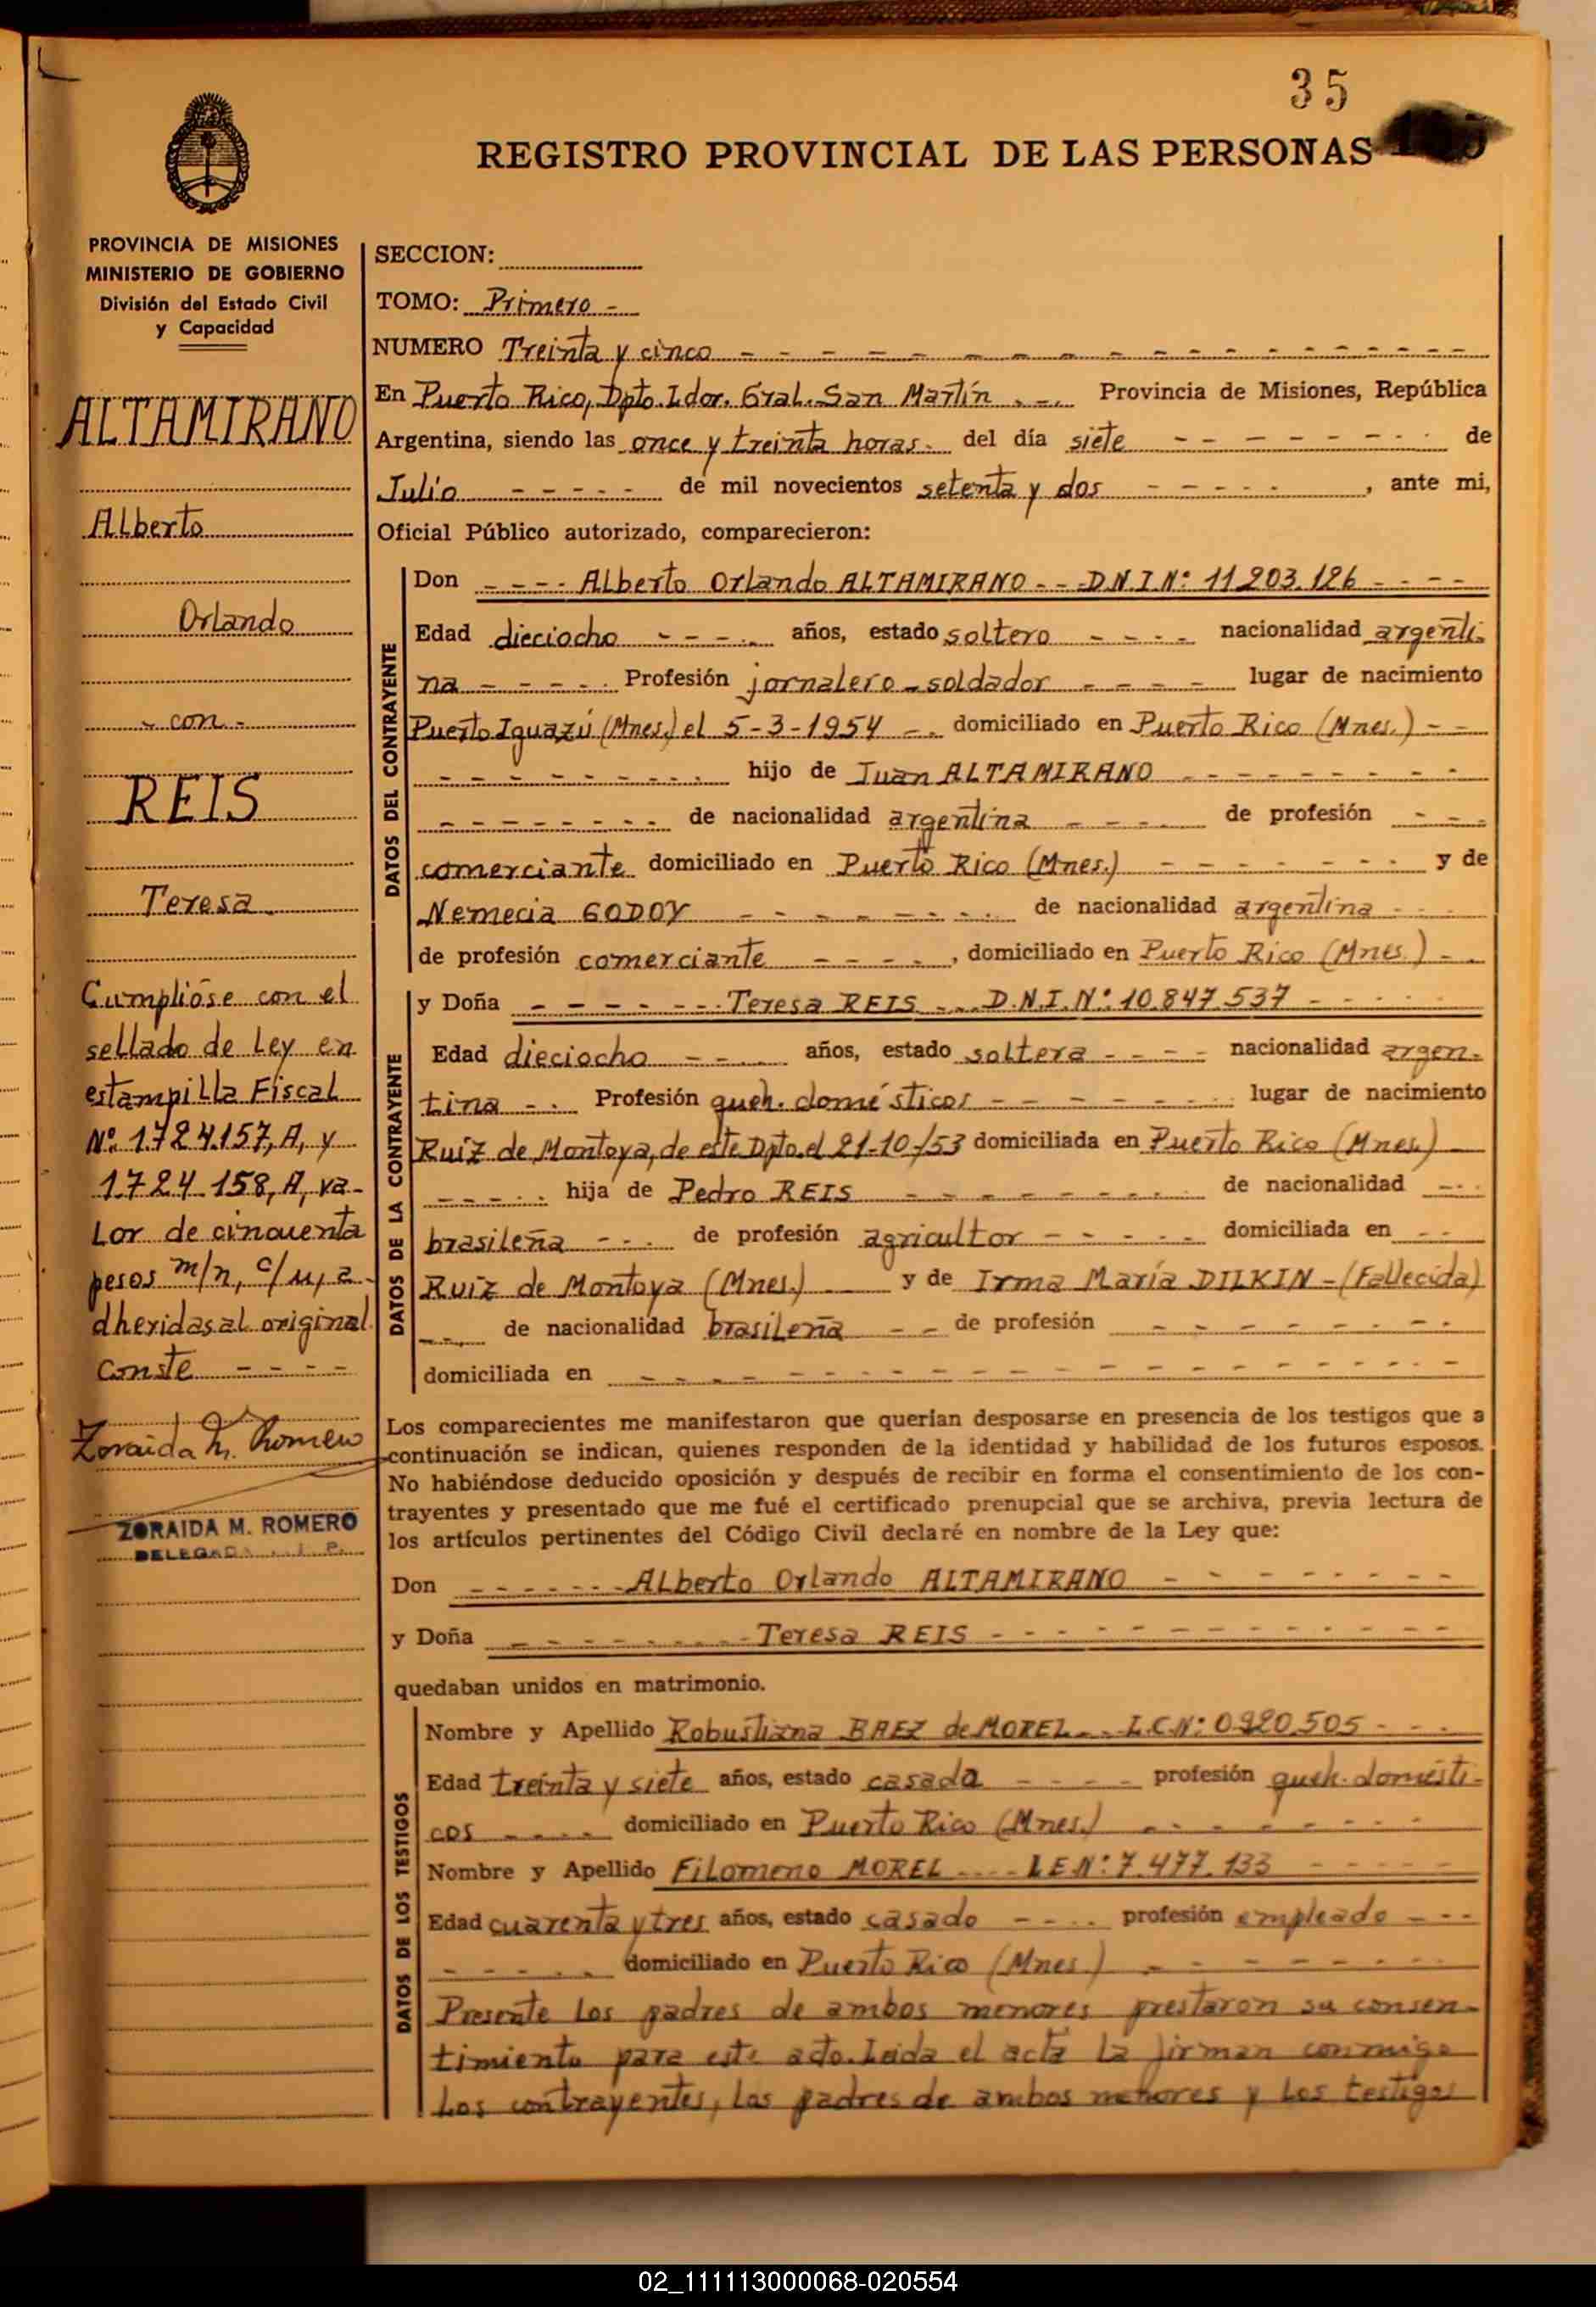 35
REGISTRO PROVINCIAL DE LAS PERSONAS
PROVINCIA DE MISIONES
MINISTERIO DE GOBIERNO
División del Estado Civil
y Capacidad
ALTAMIRANO
Alberto
Orlando
- con -
REIS
Teresa
Cumplióse con el
sellado de Ley en
estampilla Fiscal
Nº 1.724.157, A, y
1.724.158, A, va-
lor de cincuenta
pesos m/n, c/u, a
dheridas al original
Conste - - - -
Zoraida M. Romero
ZORAIDA M. ROMERO
DELEGADA
SECCION:
TOMO: Primero -
NUMERO Treinta y cinco - - - - - - - - - - - - - - - -
En Puerto Rico, Dpto. Ldor. Gral. San Martín . -. Provincia de Misiones, República
Argentina, siendo las once y treinta horas. del día siete - - - - - - - - de
Julio - - - - - de mil novecientos setenta y dos - - - - - , ante mi,
Oficial Público autorizado, comparecieron:
DATOS DEL CONTRAYENTE
Don - - - - Alberto Orlando ALTAMIRANO - - D.N.I.Nº 11.203.126 - - - -
Edad dieciocho - - - - años, estado soltero - - - - nacionalidad argenti-
na - - - - - Profesión jornalero - soldador - - - - lugar de nacimiento
Puerto Iguazú (Mnes.) el 5-3-1954 - . domiciliado en Puerto Rico (Mnes.) - -
- - - - - - - - - hijo de Juan ALTAMIRANO - - - - - - - -
- - - - - - - - de nacionalidad argentina - - - - de profesión - - -
comerciante domiciliado en Puerto Rico (Mnes.) - - - - - - - - y de
Nemecia GODOY - - - - - - - - de nacionalidad argentina - - -
de profesión comerciante - - - - , domiciliado en Puerto Rico (Mnes.) - -
DATOS DE LA CONTRAYENTE
y Doña - - - - - - - Teresa REIS - - - D.N.I.Nº 10.847.537 - - - - -
Edad dieciocho - - - años, estado soltera - - - - nacionalidad argen-
tina - - Profesión queh. domésticos - - - - - - - lugar de nacimiento
Ruiz de Montoya, de este Dpto. el 21-10-/53 domiciliada en Puerto Rico (Mnes.)
- - - - - hija de Pedro REIS - - - - - - - - de nacionalidad - - -
brasileña - - - de profesión agricultor - - - - - domiciliada en - -
Ruiz de Montoya (Mnes.) y de Irma María DILKIN - (Fallecida)
- - - de nacionalidad brasileña - - de profesión - - - - - - - -
domiciliada en - - - - - - - - - - - - - - - - - -
Los comparecientes me manifestaron que querían desposarse en presencia de los testigos que a
continuación se indican, quienes responden de la identidad y habilidad de los futuros esposos.
No habiéndose deducido oposición y después de recibir en forma el consentimiento de los con-
trayentes y presentado que me fué el certificado prenupcial que se archiva, previa lectura de
los artículos pertinentes del Código Civil declaré en nombre de la Ley que:
Don - - - - - - Alberto Orlando ALTAMIRANO - - - - - - - -
y Doña - - - - - - - - Teresa REIS - - - - - - - - - - - -
quedaban unidos en matrimonio.
DATOS DE LOS TESTIGOS
Nombre y Apellido Robustiana BAEZ de MOREL - - L.C.Nº 0.920.505 - - -
Edad treinta y siete años, estado casada - - - - profesión queh. domésti-
cos - - - - domiciliado en Puerto Rico (Mnes.) - - - - - - - -
Nombre y Apellido Filomeno MOREL - - - - L.E.Nº 7.477.133 - - - - -
Edad cuarenta y tres años, estado casado - - - - profesión empleado - - -
- - - - - domiciliado en Puerto Rico (Mnes.) - - - - - - - -
Presente los padres de ambos menores prestaron su consen-
timiento para este acto. Leída el acta la firman conmigo
los contrayentes, los padres de ambos menores y los testigos
02_111113000068-020554